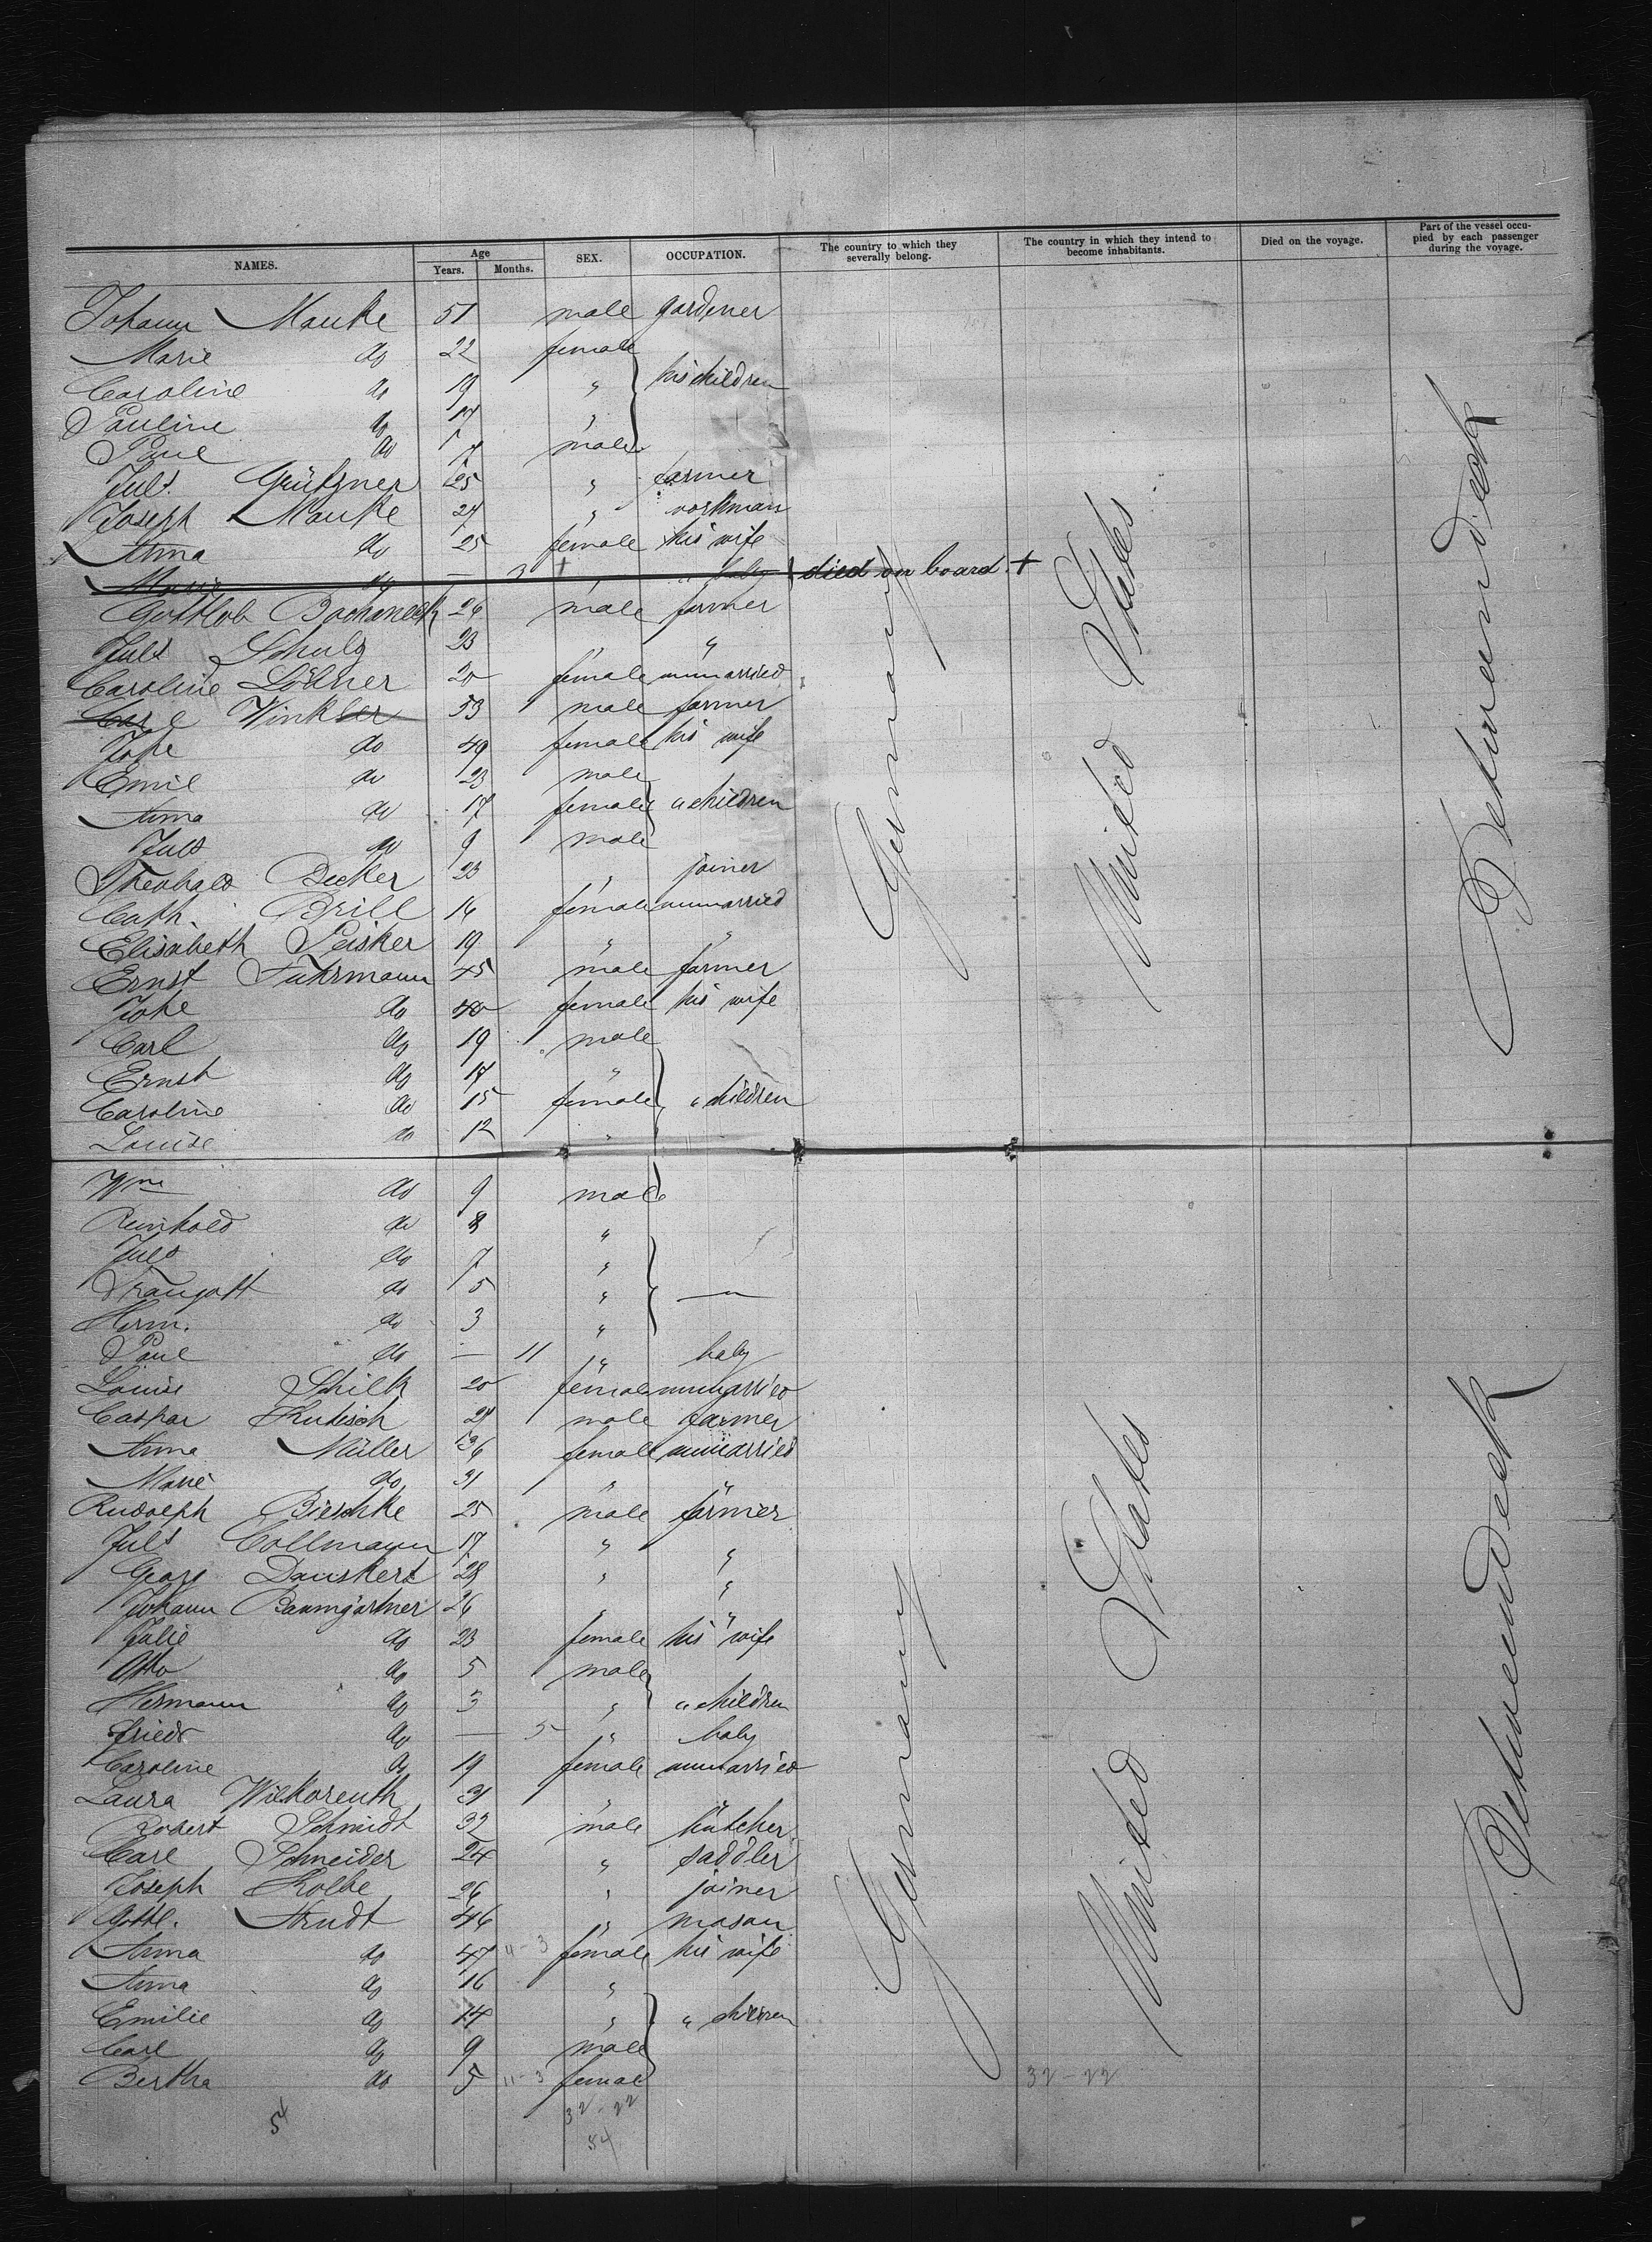 NAMES. Age Years. Months. SEX. OCCUPATION. The country to which they severally belong. The country in which they intend to become inhabitants. Died on the voyage. Part of the vessel occupied by each passenger during the voyage.
Johann Manke 51 male gardener
Marie do 22 female
Caroline do 19 " his children
Pauline do 17 "
Paul do 7 male
Juls. Grützner 25 " farmer
Joseph Manke 27 " workman
Anna do 25 female his wife
Marie do — 3 + " " baby died on board +
Gottlob 26 male farmer
Juls Schulz 23 " "
Caroline Löliner 20 female unmarried
Carl Winkler 53 male farmer
Johe do 49 female his wife
Emil do 23 male
Anna do 17 female " children
Juls do 9 male
Theobald Becker 23 " joiner
Cath. Brill 16 female unmarried
Elisabeth Peisker 19 " "
Ernst Fuhrmann 45 male farmer
Johe do 40 female his wife
Carl do 19 male
Ernst do 17 "
Caroline do 15 female " children
Louise do 12 "
Wm do 9 male
Reinhold do 8 "
Juls do 7 "
Traugott do 5 " "
Herm. do 3 "
Paul do — 11 " baby
Louise Schilk 20 female unmarried
Caspar 21 male farmer
Anna Müller 36 female unmarried
Marie do 31 " "
Rudolph Bieschke 25 male farmer
Juls Collmann 17 " "
Georg Dauskert 28 " "
Johann Baumgartner 26 " "
Julie do 23 female his wife
Otto do 5 male
Hermann do 3 " " children
Friedr do — 5 " baby
Caroline do 19 female unmarried
Laura Wilkoreuth 31 "
Robert Schmidt 32 male butcher
Carl Schneider 24 " saddler
Joseph Kolbe 26 " joiner
Gottl. Arndt 46 " mason
Anna do 47 11-3 female his wife
Anna do 16 "
Emilie do 14 " " children
Carl do 9 male
Bertha do 5 11-3 female 32-22
54 32-22
54
Germany United States Betweendeck
Germany United States Betweendeck